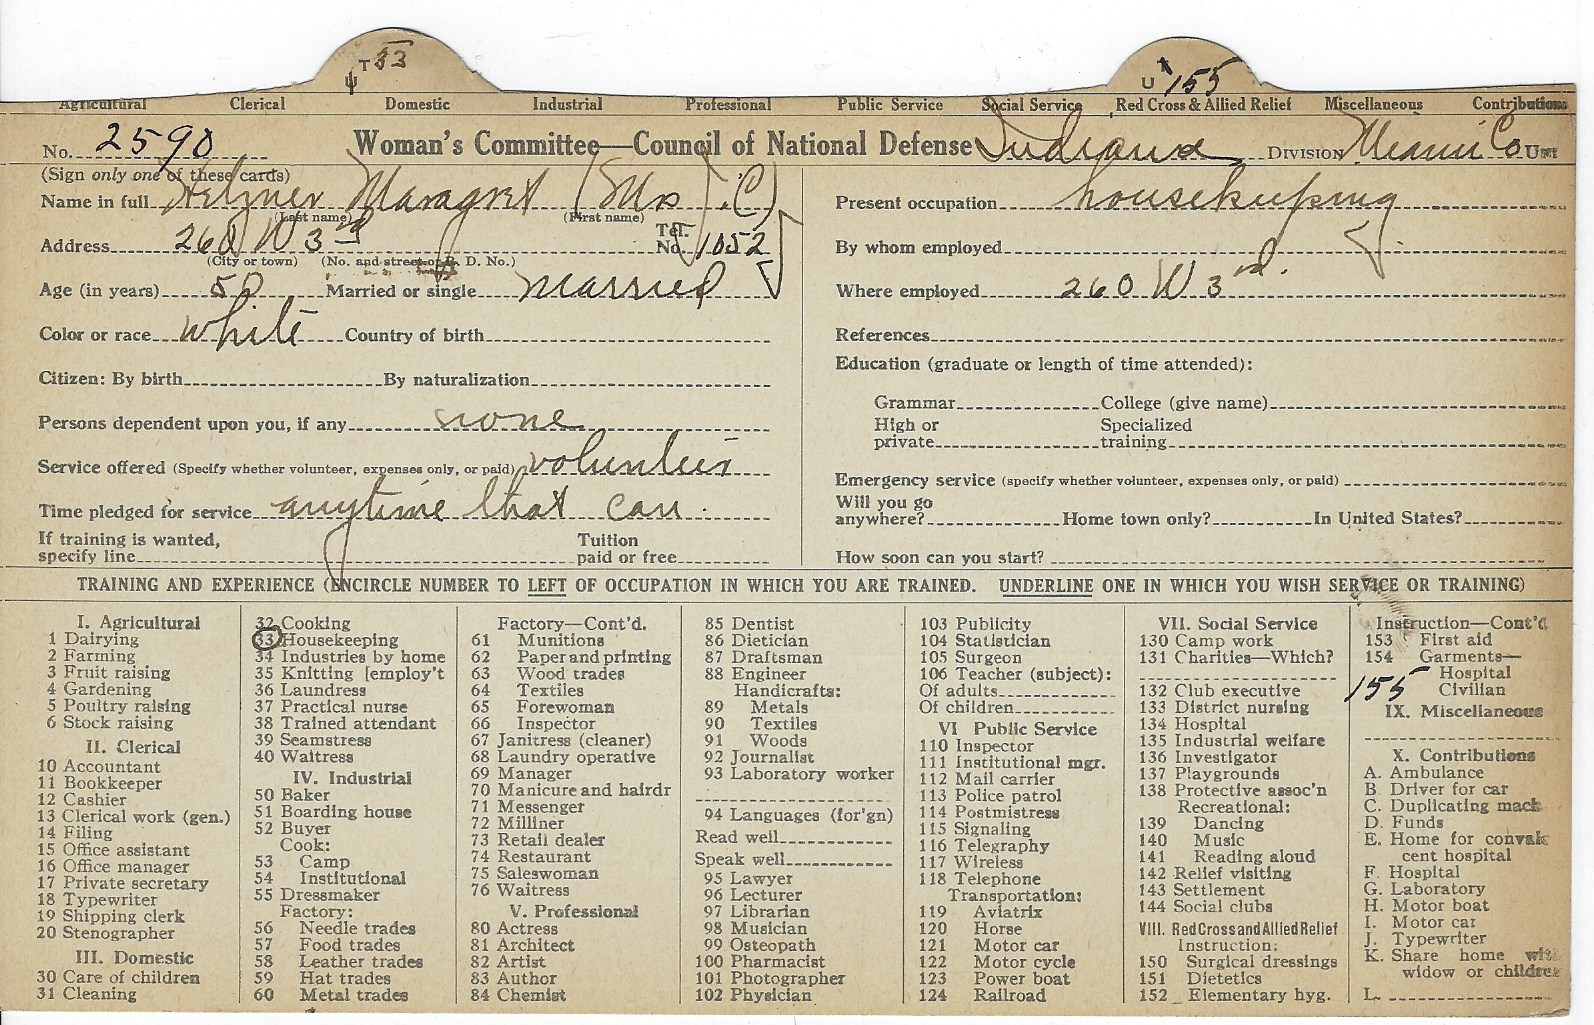 T 33 U 155
Agricultural Clerical Domestic Industrial Professional Public Service Social Service Red Cross & Allied Relief Miscellaneous Contributions
No. 2590 Woman's Committee—Council of National Defense Indiana DIVISION Miami Co UNIT
(Sign only one of these cards)
Name in full Margret (Mrs J. C)
(Last name) (First name)
Address 260 W 3rd Tel. No. 1052
(City or town) (No. and street or R. D. No.)
Age (in years) 50 Married or single married
Color or race white Country of birth
Citizen: By birth By naturalization
Persons dependent upon you, if any none
Service offered (Specify whether volunteer, expenses only, or paid) volunteer
Time pledged for service anytime that can
If training is wanted, specify line Tuition paid or free
Present occupation housekeeping
By whom employed
Where employed 260 W 3rd.
References
Education (graduate or length of time attended):
Grammar College (give name)
High or private Specialized training
Emergency service (specify whether volunteer, expenses only, or paid)
Will you go anywhere? Home town only? In United States?
How soon can you start?
TRAINING AND EXPERIENCE (ENCIRCLE NUMBER TO LEFT OF OCCUPATION IN WHICH YOU ARE TRAINED. UNDERLINE ONE IN WHICH YOU WISH SERVICE OR TRAINING)
I. Agricultural
1 Dairying
2 Farming
3 Fruit raising
4 Gardening
5 Poultry raising
6 Stock raising
II. Clerical
10 Accountant
11 Bookkeeper
12 Cashier
13 Clerical work (gen.)
14 Filing
15 Office assistant
16 Office manager
17 Private secretary
18 Typewriter
19 Shipping clerk
20 Stenographer
III. Domestic
30 Care of children
31 Cleaning
32 Cooking
33 Housekeeping
34 Industries by home
35 Knitting [employ't
36 Laundress
37 Practical nurse
38 Trained attendant
39 Seamstress
40 Waitress
IV. Industrial
50 Baker
51 Boarding house
52 Buyer
Cook:
53 Camp
54 Institutional
55 Dressmaker
Factory:
56 Needle trades
57 Food trades
58 Leather trades
59 Hat trades
60 Metal trades
Factory—Cont'd.
61 Munitions
62 Paper and printing
63 Wood trades
64 Textiles
65 Forewoman
66 Inspector
67 Janitress (cleaner)
68 Laundry operative
69 Manager
70 Manicure and hairdr
71 Messenger
72 Milliner
73 Retail dealer
74 Restaurant
75 Saleswoman
76 Waitress
V. Professional
80 Actress
81 Architect
82 Artist
83 Author
84 Chemist
85 Dentist
86 Dietician
87 Draftsman
88 Engineer
Handicrafts:
89 Metals
90 Textiles
91 Woods
92 Journalist
93 Laboratory worker
94 Languages (for'gn)
Read well
Speak well
95 Lawyer
96 Lecturer
97 Librarian
98 Musician
99 Osteopath
100 Pharmacist
101 Photographer
102 Physician
103 Publicity
104 Statistician
105 Surgeon
106 Teacher (subject):
Of adults
Of children
VI Public Service
110 Inspector
111 Institutional mgr.
112 Mail carrier
113 Police patrol
114 Postmistress
115 Signaling
116 Telegraphy
117 Wireless
118 Telephone
Transportation:
119 Aviatrix
120 Horse
121 Motor car
122 Motor cycle
123 Power boat
124 Railroad
VII. Social Service
130 Camp work
131 Charities—Which?
132 Club executive
133 District nursing
134 Hospital
135 Industrial welfare
136 Investigator
137 Playgrounds
138 Protective assoc'n
Recreational:
139 Dancing
140 Music
141 Reading aloud
142 Relief visiting
143 Settlement
144 Social clubs
VIII. Red Cross and Allied Relief
Instruction:
150 Surgical dressings
151 Dietetics
152 Elementary hyg.
Instruction—Cont'd
153 First aid
154 Garments—
Hospital
155 Civilian
IX. Miscellaneous
X. Contributions
A. Ambulance
B. Driver for car
C. Duplicating mach
D. Funds
E. Home for convales
cent hospital
F. Hospital
G. Laboratory
H. Motor boat
I. Motor car
J. Typewriter
K. Share home with
widow or children
L.